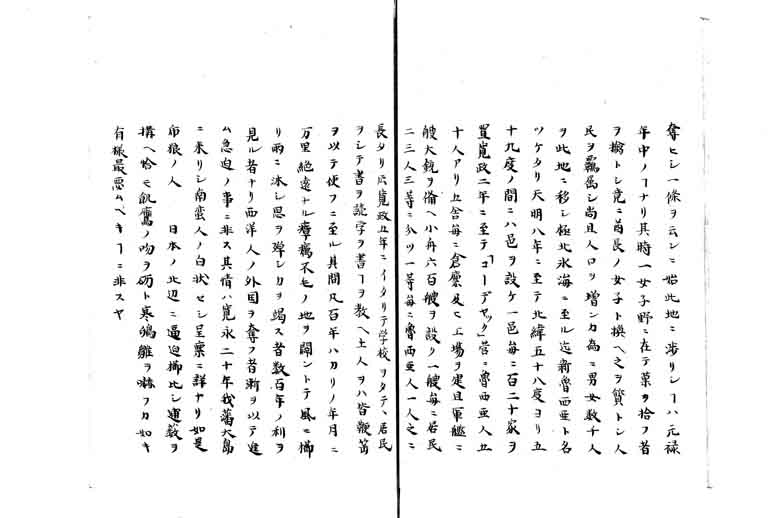 奪ヒシ一條ヲ云ンニ始此地ニ渉リシ丁ハ元禄
年中ノ丁ナリ其時一女子野ニ在テ菓ヲ拾フ者
ヲ擒トシ竟ニ酋長ノ女子ト換ヘ之ヲ質トシ人
民ヲ羈属シ尚且人口ヲ増ンカ為ニ男女数千人
ヲ此地ニ移シ極北氷海ニ至ル迄新魯西亜ト名
ツケタリ天明八年ニ至テ北緯五十八度ヨリ五
十九度ノ間ニハ邑ヲ設ケ一邑毎ニ百二十家ヲ
置寛政二年ニ至テ「コーデヤック」営ニ魯西亜人五
十人アリ且舎毎ニ倉廩及ヒ工場ヲ建且軍艦ニ
艘大銃ヲ備ヘ小舟六百艘ヲ設ク一艘毎ニ居民
二三人三等ニ分ツ一等毎ニ魯西亜人一人之ニ
長タリ寛政五年ニイタリテ学校ヲタテヽ居民
ヲシテ書ヲ読字ヲ書丁ヲ教ヘ土人ヲハ皆鞭笞
ヲ以テ使フニ至ル其間凡百年ハカリノ年月ニ
万里絶遠ナル瘴癘不毛ノ地ヲ開ントテ風ニ櫛
リ雨ニ沐シ思ヲ殫シ力ヲ竭ス者数百年ノ利ヲ
見ル者ナリ西洋人ノ外国ヲ奪フ者漸ヲ以テ進
ム急迫ノ事ニ非ス其情ハ寛永二十年我藩大島
ニ来リシ南蛮人ノ白状セシ呈稟ニ詳ナリ如是
虎狼ノ人 日本ノ北辺ニ逼迫櫛比シ運籔ヲ
搆ヘ恰モ飢鷹ノ吻ヲ砺ト寒鴟雛ヲ嚇フカ如キ
有様最悪ムヘキ丁ニ非スヤ